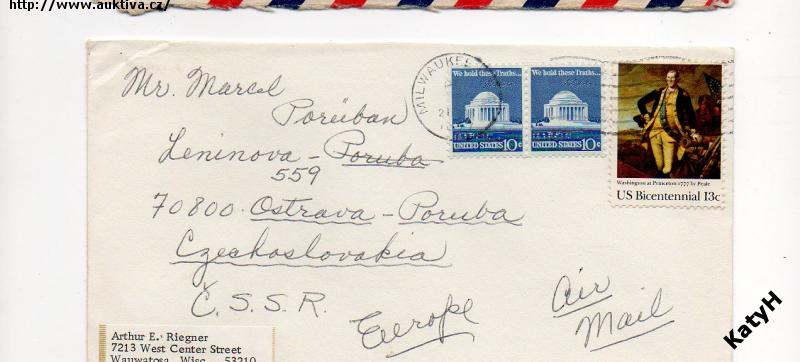 http://www.auktiva.cz/
MILWAUKEE
We hold these Truths...
We hold these Truths...
UNITED STATES 10c
UNITED STATES 10c
Washington at Princeton 1777 by Peale
US Bicentennial 13c
Mr. Marcel
Porüban
Leninova - Poruba
559
70800 - Ostrava - Poruba
Czechoslovakia
Č. S. S. R.
Europe
Air
Mail
Arthur E. Riegner
7213 West Center Street
Wauwatosa, Wisc. 53210
KatyH